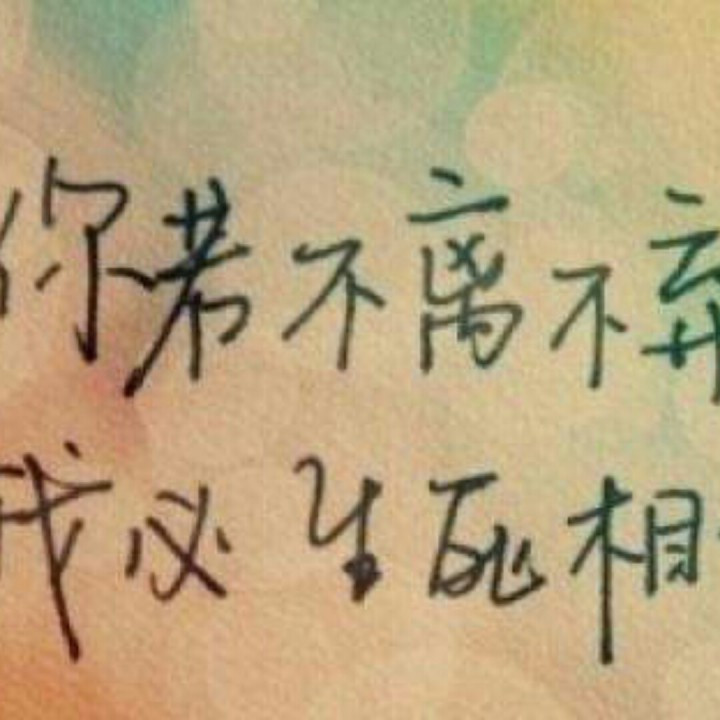 你若不离不弃
我必生死相